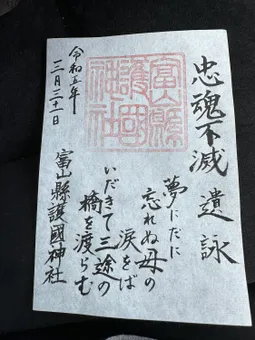 忠魂不滅 遺詠
夢にだに
忘れぬ母の
涙をば
いだきて三途の
橋を渡らむ
富山縣護國神社
富山縣
護國
神社
令和五年
三月三十一日